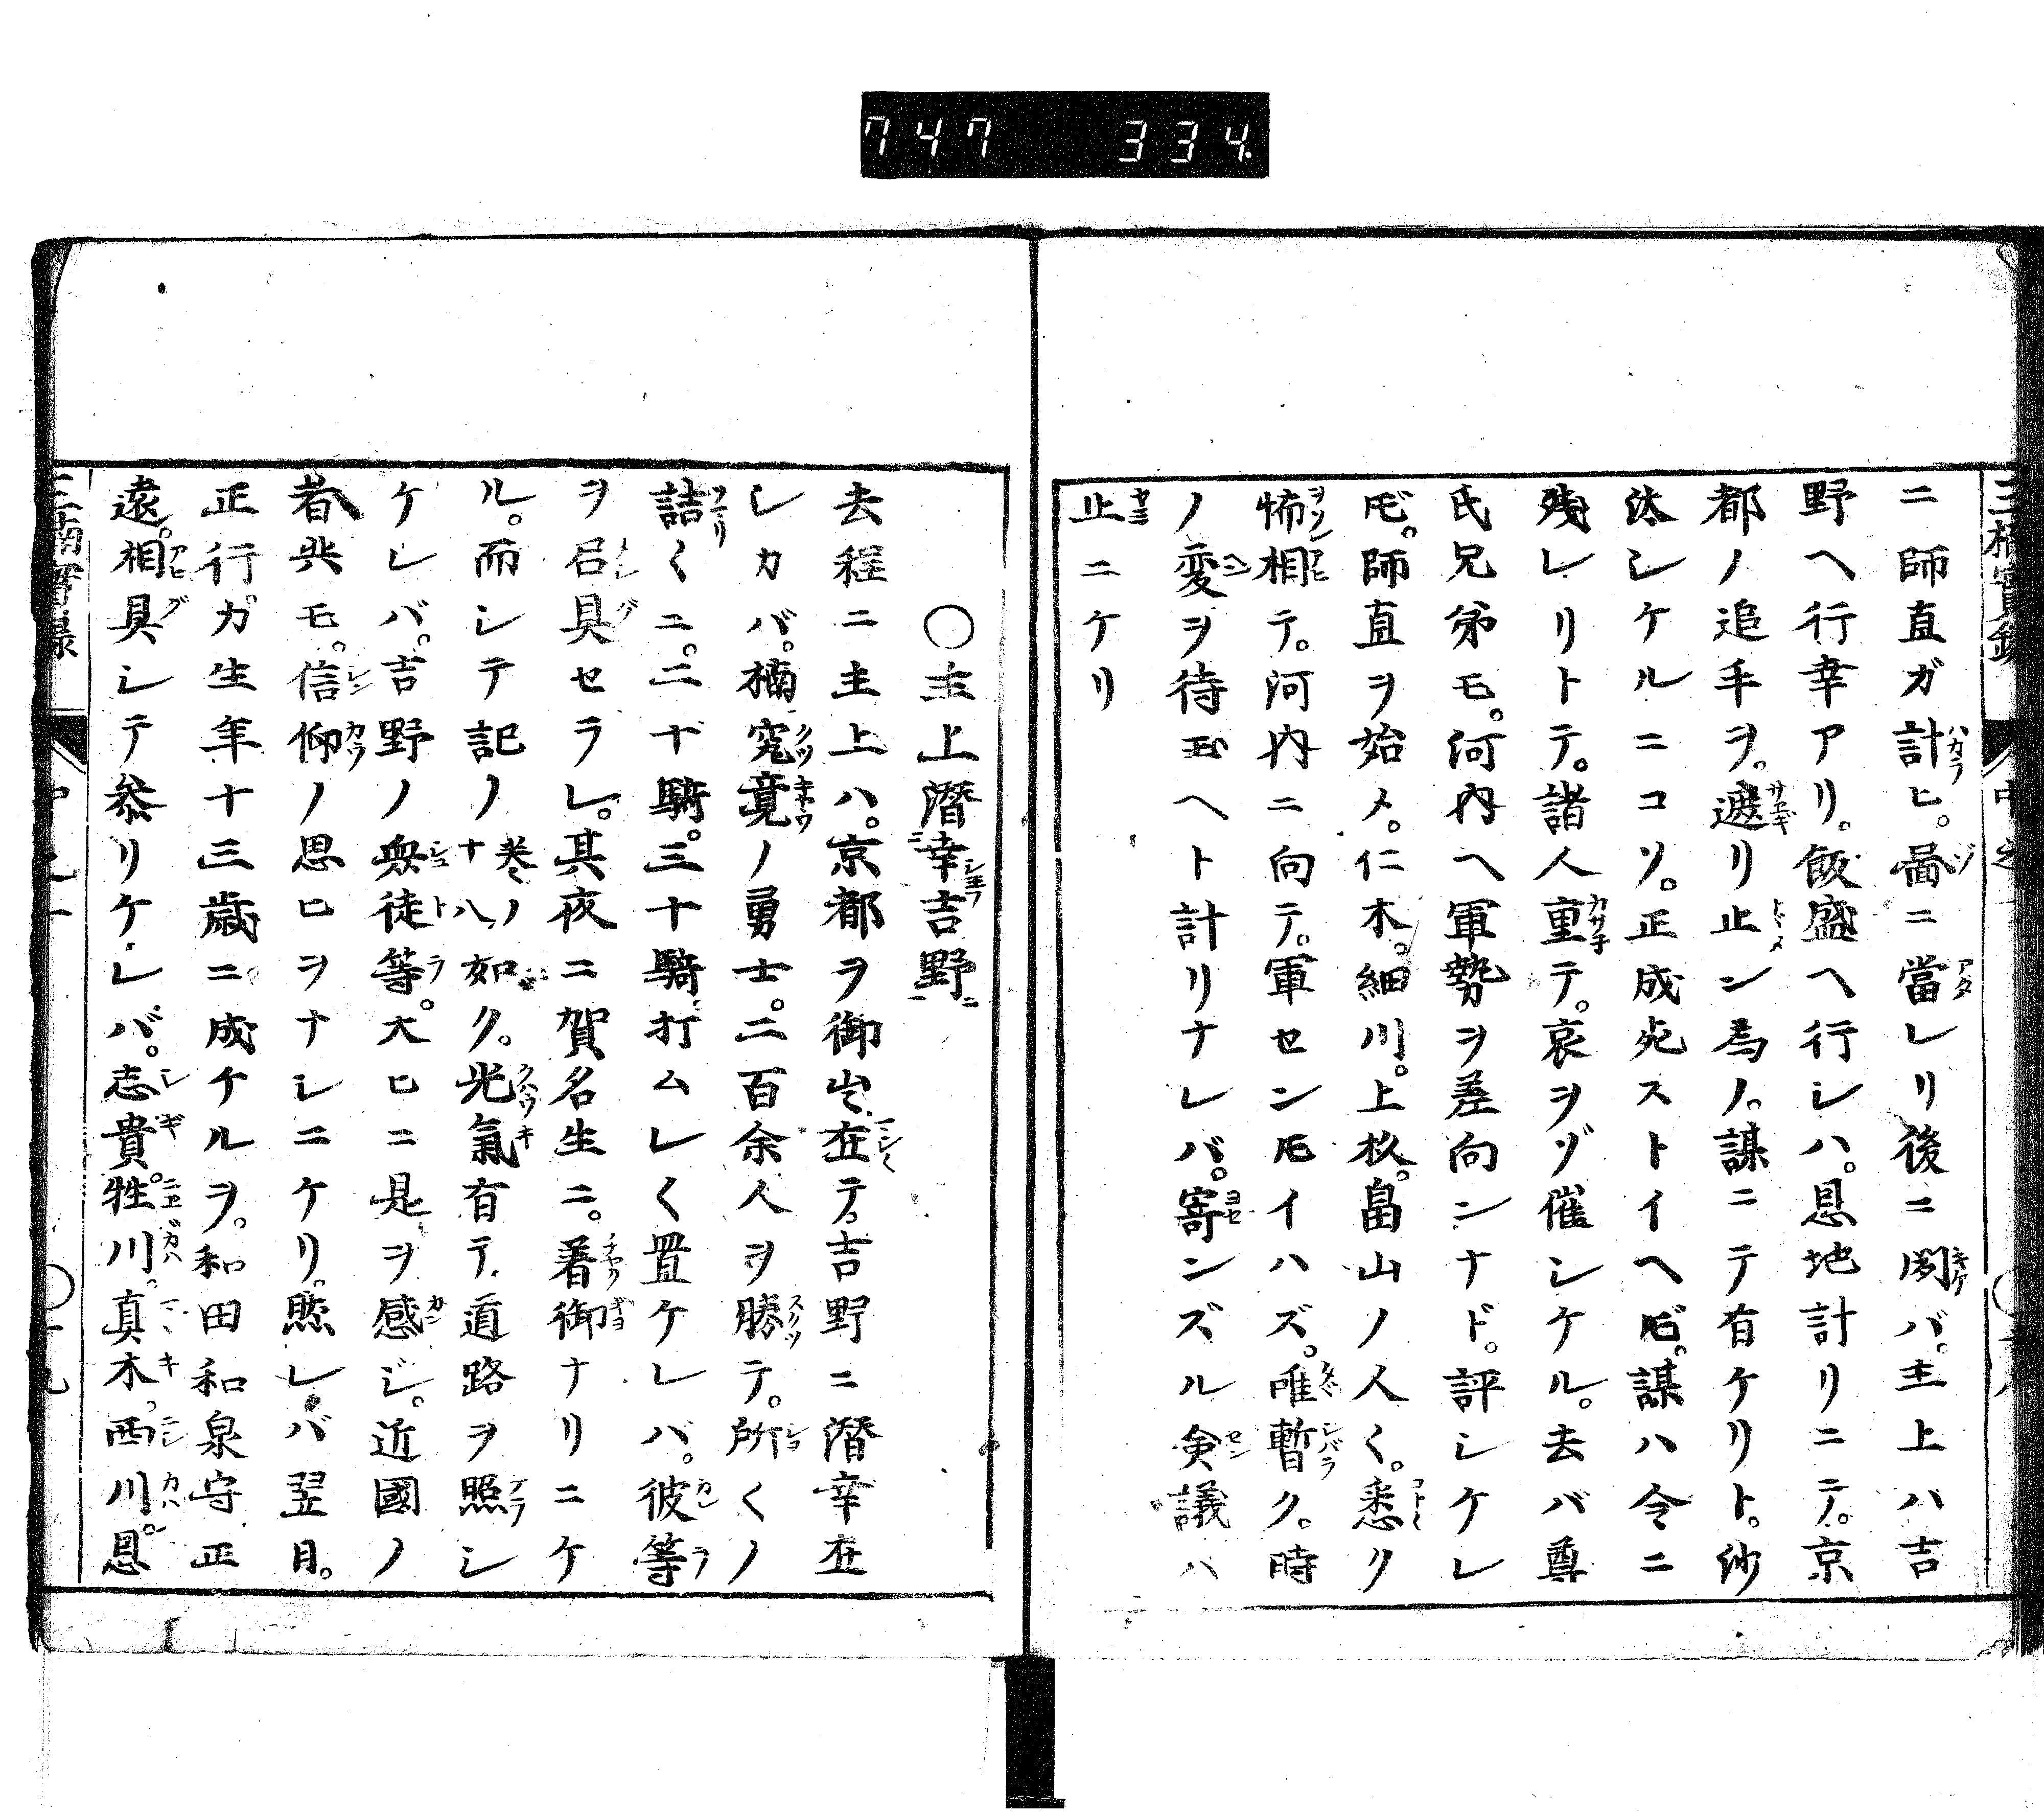 747 334
三楠實録
ニ師直ガ計ヒ。啚ニ當レリ後ニ聞バ。主上ハ吉
野ヘ行幸アリ。飯盛ヘ行シハ。恩地計リニテ。京
都ノ追手ヲ。遮リ止ン為ノ。謀ニテ有ケリト。沙
汰シケルニコソ。正成死ストイヘ𪜈。謀ハ今ニ
残レリトテ。諸人重テ。哀ヲゾ催シケル。去バ尊
氏兄弟モ。河内ヘ軍勢ヲ差向ンナド。評シケレ
𪜈。師直ヲ始メ。仁木。細川。上杦。畠山ノ人〱。悉ク
怖相テ。河内ニ向テ。軍セン𪜈イハズ。唯暫ク。時
ノ変ヲ待玉ヘト計リナレバ。寄ンズル僉議ハ
止ニケリ
○主上潛幸吉野
去程ニ主上ハ。京都ヲ御出在テ。吉野ニ潛幸在
シカバ。楠究竟ノ勇士。二百余人ヲ勝テ。所〱ノ
詰〱ニ。二十騎。三十騎打ムレ〱置ケレバ。彼等
ヲ召具セラレ。其夜ニ賀名生ニ。着御ナリニケ
ル。而シテ記ノ十八巻ノ如ク。光氣有テ道路ヲ照シ
ケレバ。吉野ノ衆徒等。大ヒニ是ヲ感ジ。近國ノ
者共モ。信仰ノ思ヒヲナシニケリ。㷊レバ翌日。
正行ガ生年十三歳ニ成ケルヲ。和田和泉守正
遠。相具シテ參リケレバ。志貴。牲川。真木。西川。恩
三楠實録